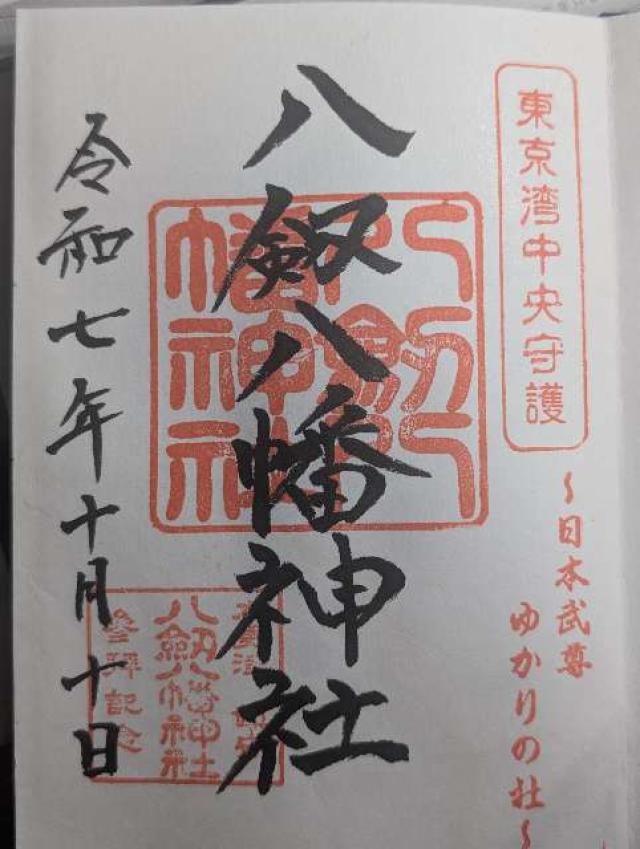 東京湾中央守護
～日本武尊
ゆかりの社～
八剱八幡神社
八剱八幡神社
令和七年十月十日
八剱八幡神社
参拝記念